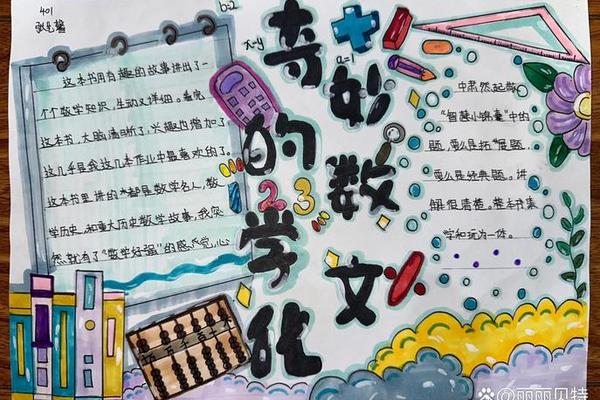 401
b=2
x-y
a=1
奇妙
的数
学文
化
2 3
这本书用有趣的故事讲出了一
个个数学知识,生动又详细。看完
这本书,大脑清晰了,兴趣也增加了,
这几是我这几本作业中最喜欢的了。
这本书里讲的都是数学名人,数
学历史,和重大历史数学故事,我忽
然就有了“数学好强”的感觉,心
中肃然起敬。
“智慧小锦囊”中的
题,要么是拓展题,
要么是经典题。讲
解很清楚。整本书集
学和玩为一体。
@丽丽贝特